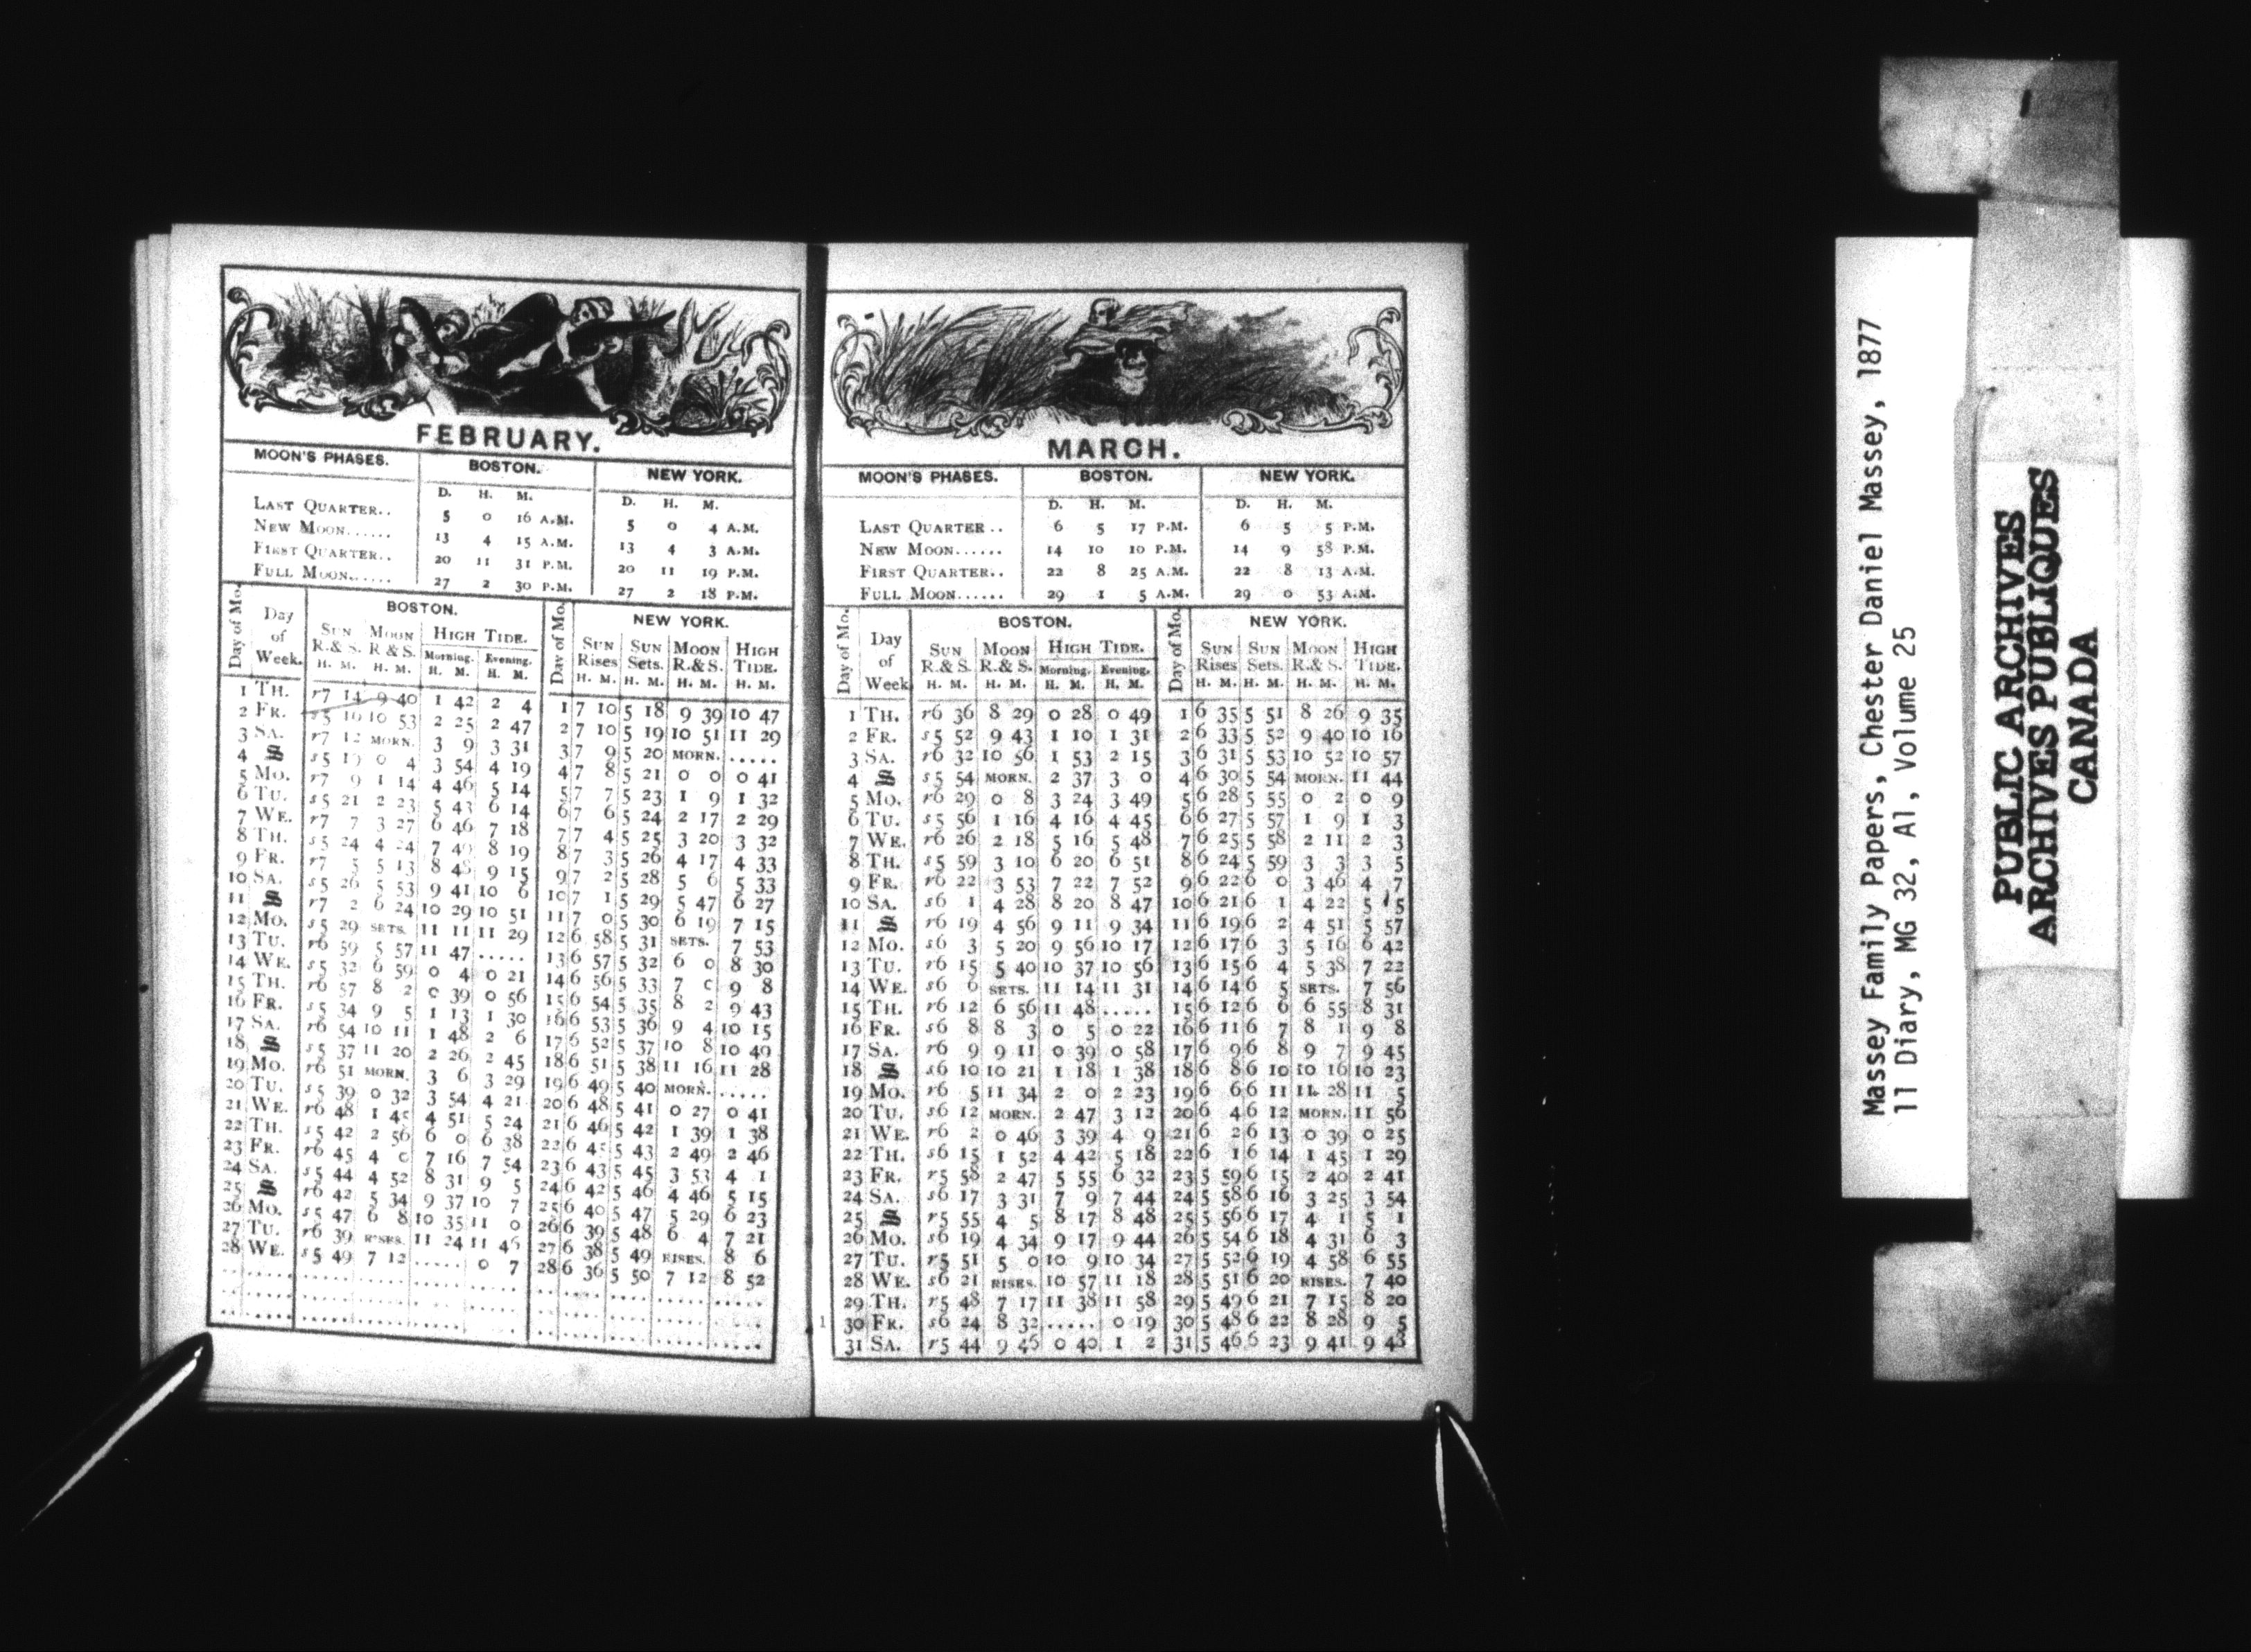 FEBRUARY.
MOON'S PHASES. BOSTON. NEW YORK.
D. H. M. D. H. M.
LAST QUARTER.. 5 0 16 A.M. 5 0 4 A.M.
NEW MOON...... 13 4 15 A.M. 13 4 3 A.M.
FIRST QUARTER.. 20 11 31 P.M. 20 11 19 P.M.
FULL MOON...... 27 2 30 P.M. 27 2 18 P.M.
Day of Mo. Day of Week. BOSTON. Day of Mo. NEW YORK.
SUN R.& S. MOON R.& S. HIGH TIDE. SUN Rises SUN Sets. MOON R.& S. HIGH TIDE.
Morning. Evening.
H. M. H. M. H. M. H. M. H. M. H. M. H. M. H. M.
1 TH. r7 14 9 40 1 42 2 4 1 7 10 5 18 9 39 10 47
2 FR. s5 16 10 53 2 25 2 47 2 7 10 5 19 10 51 11 29
3 SA. r7 12 MORN. 3 9 3 31 3 7 9 5 20 MORN. .....
4 S s5 19 0 4 3 54 4 19 4 7 8 5 21 0 0 0 41
5 MO. r7 9 1 14 4 46 5 14 5 7 7 5 23 1 9 1 32
6 TU. s5 21 2 23 5 43 6 14 6 7 6 5 24 2 17 2 29
7 WE. r7 7 3 27 6 46 7 18 7 7 4 5 25 3 20 3 32
8 TH. s5 24 4 24 7 49 8 19 8 7 3 5 26 4 17 4 33
9 FR. r7 5 5 13 8 48 9 15 9 7 2 5 28 5 6 5 33
10 SA. s5 26 5 53 9 41 10 6 10 7 1 5 29 5 47 6 27
11 S r7 2 6 24 10 29 10 51 11 7 0 5 30 6 19 7 15
12 MO. s5 29 SETS. 11 11 11 29 12 6 58 5 31 SETS. 7 53
13 TU. r6 59 5 57 11 47 ..... 13 6 57 5 32 6 0 8 30
14 WE. s5 32 6 59 0 4 0 21 14 6 56 5 33 7 0 9 8
15 TH. r6 57 8 2 0 39 0 56 15 6 54 5 35 8 2 9 43
16 FR. s5 34 9 5 1 13 1 30 16 6 53 5 36 9 4 10 15
17 SA. r6 54 10 11 1 48 2 6 17 6 52 5 37 10 8 10 49
18 S s5 37 11 20 2 26 2 45 18 6 51 5 38 11 16 11 28
19 MO. r6 51 MORN. 3 6 3 29 19 6 49 5 40 MORN. .....
20 TU. s5 39 0 32 3 54 4 21 20 6 48 5 41 0 27 0 41
21 WE. r6 48 1 45 4 51 5 24 21 6 46 5 42 1 39 1 38
22 TH. s5 42 2 56 6 0 6 38 22 6 45 5 43 2 49 2 46
23 FR. r6 45 4 0 7 16 7 54 23 6 43 5 45 3 53 4 1
24 SA. s5 44 4 52 8 31 9 5 24 6 42 5 46 4 46 5 15
25 S r6 42 5 34 9 37 10 7 25 6 40 5 47 5 29 6 23
26 MO. s5 47 6 8 10 35 11 0 26 6 39 5 48 6 4 7 21
27 TU. r6 39 RISES. 11 24 11 46 27 6 38 5 49 RISES. 8 6
28 WE. s5 49 7 12 ..... 0 7 28 6 36 5 50 7 12 8 52
MARCH.
MOON'S PHASES. BOSTON. NEW YORK.
D. H. M. D. H. M.
LAST QUARTER.. 6 5 17 P.M. 6 5 5 P.M.
NEW MOON...... 14 10 10 P.M. 14 9 58 P.M.
FIRST QUARTER.. 22 8 25 A.M. 22 8 13 A.M.
FULL MOON...... 29 1 5 A.M. 29 0 53 A.M.
Day of Mo. Day of Week BOSTON. Day of Mo. NEW YORK.
SUN R.& S. MOON R.& S. HIGH TIDE. SUN Rises SUN Sets. MOON R.& S. HIGH TIDE.
Morning. Evening.
H. M. H. M. H. M. H. M. H. M. H. M. H. M. H. M.
1 TH. r6 36 8 29 0 28 0 49 1 6 35 5 51 8 26 9 35
2 FR. s5 52 9 43 1 10 1 31 2 6 33 5 52 9 40 10 16
3 SA. r6 32 10 56 1 53 2 15 3 6 31 5 53 10 52 10 57
4 S s5 54 MORN. 2 37 3 0 4 6 30 5 54 MORN. 11 44
5 MO. r6 29 0 8 3 24 3 49 5 6 28 5 55 0 2 0 9
6 TU. s5 56 1 16 4 16 4 45 6 6 27 5 57 1 9 1 3
7 WE. r6 26 2 18 5 16 5 48 7 6 25 5 58 2 11 2 3
8 TH. s5 59 3 10 6 20 6 51 8 6 24 5 59 3 3 3 5
9 FR. r6 22 3 53 7 22 7 52 9 6 22 6 0 3 46 4 7
10 SA. s6 1 4 28 8 20 8 47 10 6 21 6 1 4 22 5 5
11 S r6 19 4 56 9 11 9 34 11 6 19 6 2 4 51 5 57
12 MO. s6 3 5 20 9 56 10 17 12 6 17 6 3 5 16 6 42
13 TU. r6 15 5 40 10 37 10 56 13 6 15 6 4 5 38 7 22
14 WE. s6 6 SETS. 11 14 11 31 14 6 14 6 5 SETS. 7 56
15 TH. r6 12 6 56 11 48 ..... 15 6 12 6 6 6 55 8 31
16 FR. s6 8 8 3 0 5 0 22 16 6 11 6 7 8 1 9 8
17 SA. r6 9 9 11 0 39 0 58 17 6 9 6 8 9 7 9 45
18 S s6 10 10 21 1 18 1 38 18 6 8 6 10 10 16 10 23
19 MO. r6 5 11 34 2 0 2 23 19 6 6 6 11 11 28 11 5
20 TU. s6 12 MORN. 2 47 3 12 20 6 4 6 12 MORN. 11 56
21 WE. r6 2 0 46 3 39 4 9 21 6 2 6 13 0 39 0 25
22 TH. s6 15 1 52 4 42 5 18 22 6 1 6 14 1 45 1 29
23 FR. r5 58 2 47 5 55 6 32 23 5 59 6 15 2 40 2 41
24 SA. s6 17 3 31 7 9 7 44 24 5 58 6 16 3 25 3 54
25 S r5 55 4 5 8 17 8 48 25 5 56 6 17 4 1 5 1
26 MO. s6 19 4 34 9 17 9 44 26 5 54 6 18 4 31 6 3
27 TU. r5 51 5 0 10 9 10 34 27 5 52 6 19 4 58 6 55
28 WE. s6 21 RISES. 10 57 11 18 28 5 51 6 20 RISES. 7 40
29 TH. r5 48 7 17 11 38 11 58 29 5 49 6 21 7 15 8 20
30 FR. s6 24 8 32 ..... 0 19 30 5 48 6 22 8 28 9 5
31 SA. r5 44 9 46 0 40 1 2 31 5 46 6 23 9 41 9 48
Massey Family Papers, Chester Daniel Massey, 1877
11 Diary, MG 32, A1, Volume 25
PUBLIC ARCHIVES
ARCHIVES PUBLIQUES
CANADA